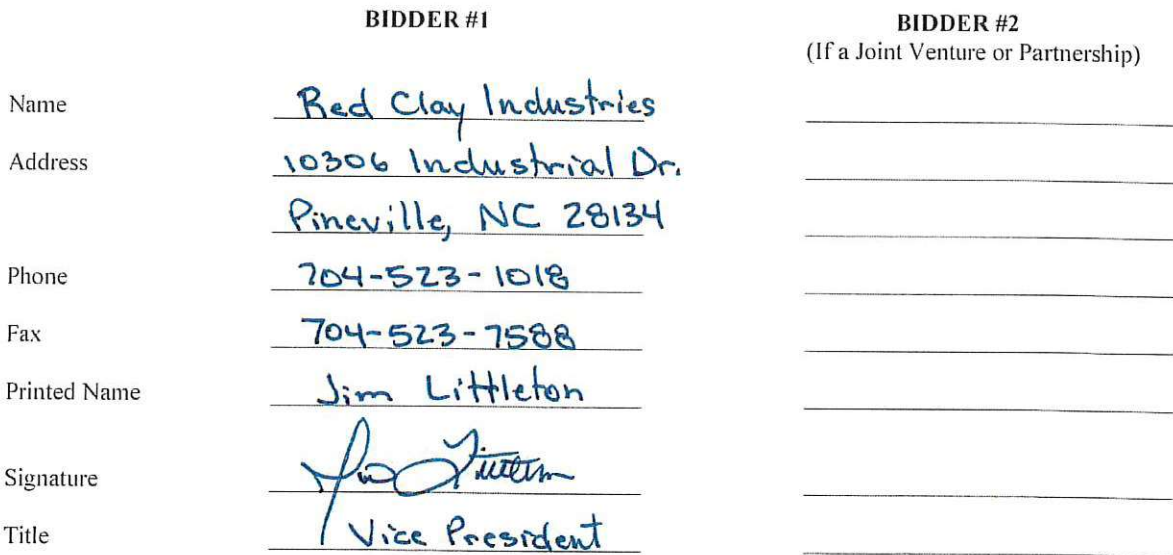 BIDDER #1 BIDDER #2
(If a Joint Venture or Partnership)
Name Red Clay Industries
Address 10306 Industrial Dr.
Pineville, NC 28134
Phone 704-523-1018
Fax 704-523-7588
Printed Name Jim Littleton
Signature
Title Vice President